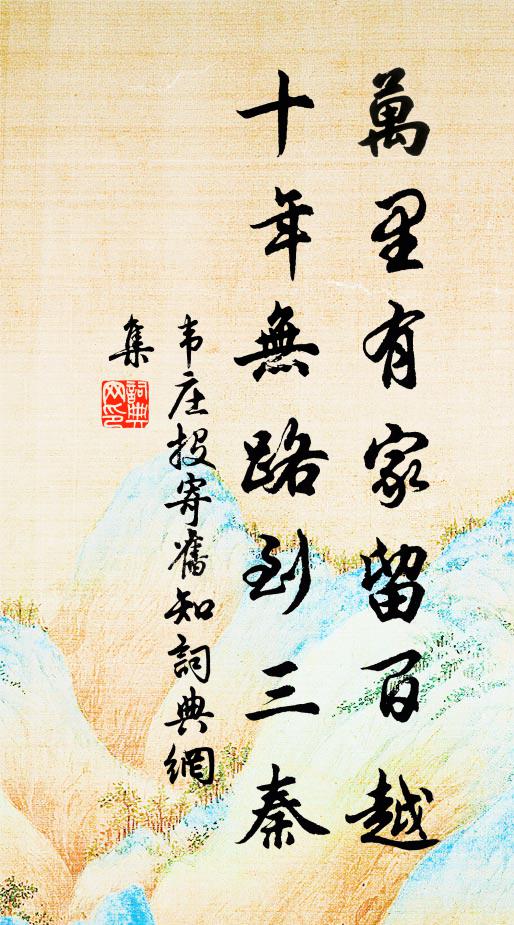 萬里有家留百越
十年無路到三秦
韦庄投寄舊知詞典網
集
詞典
网印